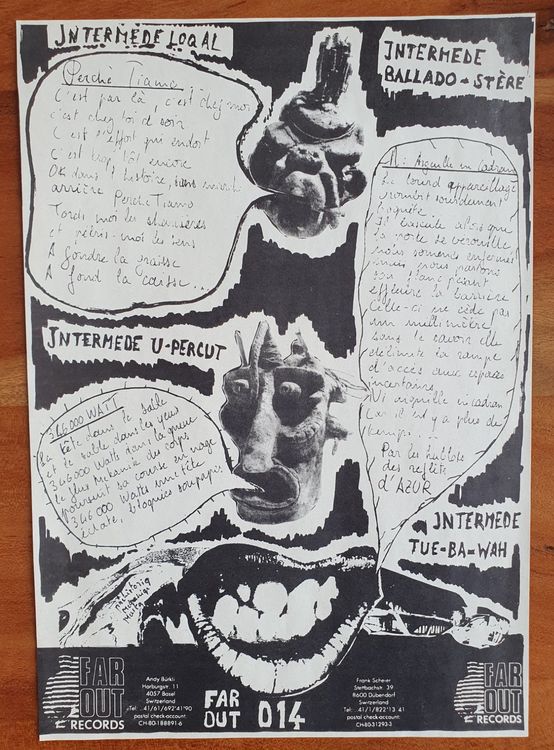 JNTERMEDE LOQAL
Perchè Tiamo!
C'est par là c'est chez moi
c'est chez toi ce soir
C'est l'effort qui endort
C'est trop tôt encore
OK dans l'histoire, sans
arrière Perchè Tiamo
Tords moi les
et pétris-moi les sens
A fondre la graisse
A fond la caisse...
JNTERMEDE
BALLADO-STÈRE
Ni Aiguille ni Cadran
Le lourd appareillage
sourdement
Il bascule alors que
la porte se verrouille
nous sommes enfermés
mais nous partons
effleure la barrière
Celle-ci ne cède pas
un millimètre
sans le savoir elle
délimite la rampe
d'accès aux espaces
incertains
Ni aiguille ni cadran
Car il n'y a plus de
temps...
Par les hublots
des reflets
d'AZUR
JNTERMEDE U-PERCUT
346000 WATT
La tête dans le sable
et le sable dans les yeux
346000 Watts dans la gueule
le flux
poursuit sa course en nage
346000 Watts
éclate, bloquées soupapes
JNTERMEDE
TUE-BA-WAH
FAR
OUT
RECORDS
Andy Bürkli
Horburgstr. 11
4057 Basel
Switzerland
Tel: .41/61/692'41'90
postal check-account:
CH-80-188891-6
FAR
OUT 014
Frank Scheier
Stettbachstr. 39
8600 Dübendorf
Switzerland
Tel: .41/1/822'13 41
postal check-account:
CH-80-31293-3
FAR
OUT
RECORDS